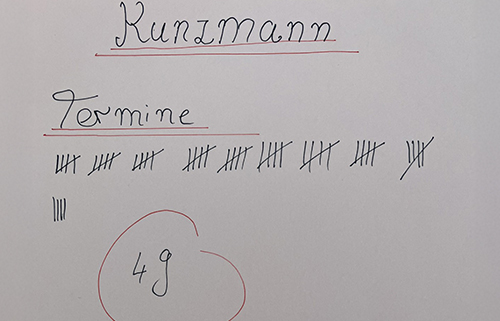 Kunzmann
Termine
49